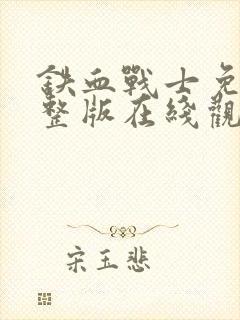 铁血戰士免
整版在綫觀
宋玉悲